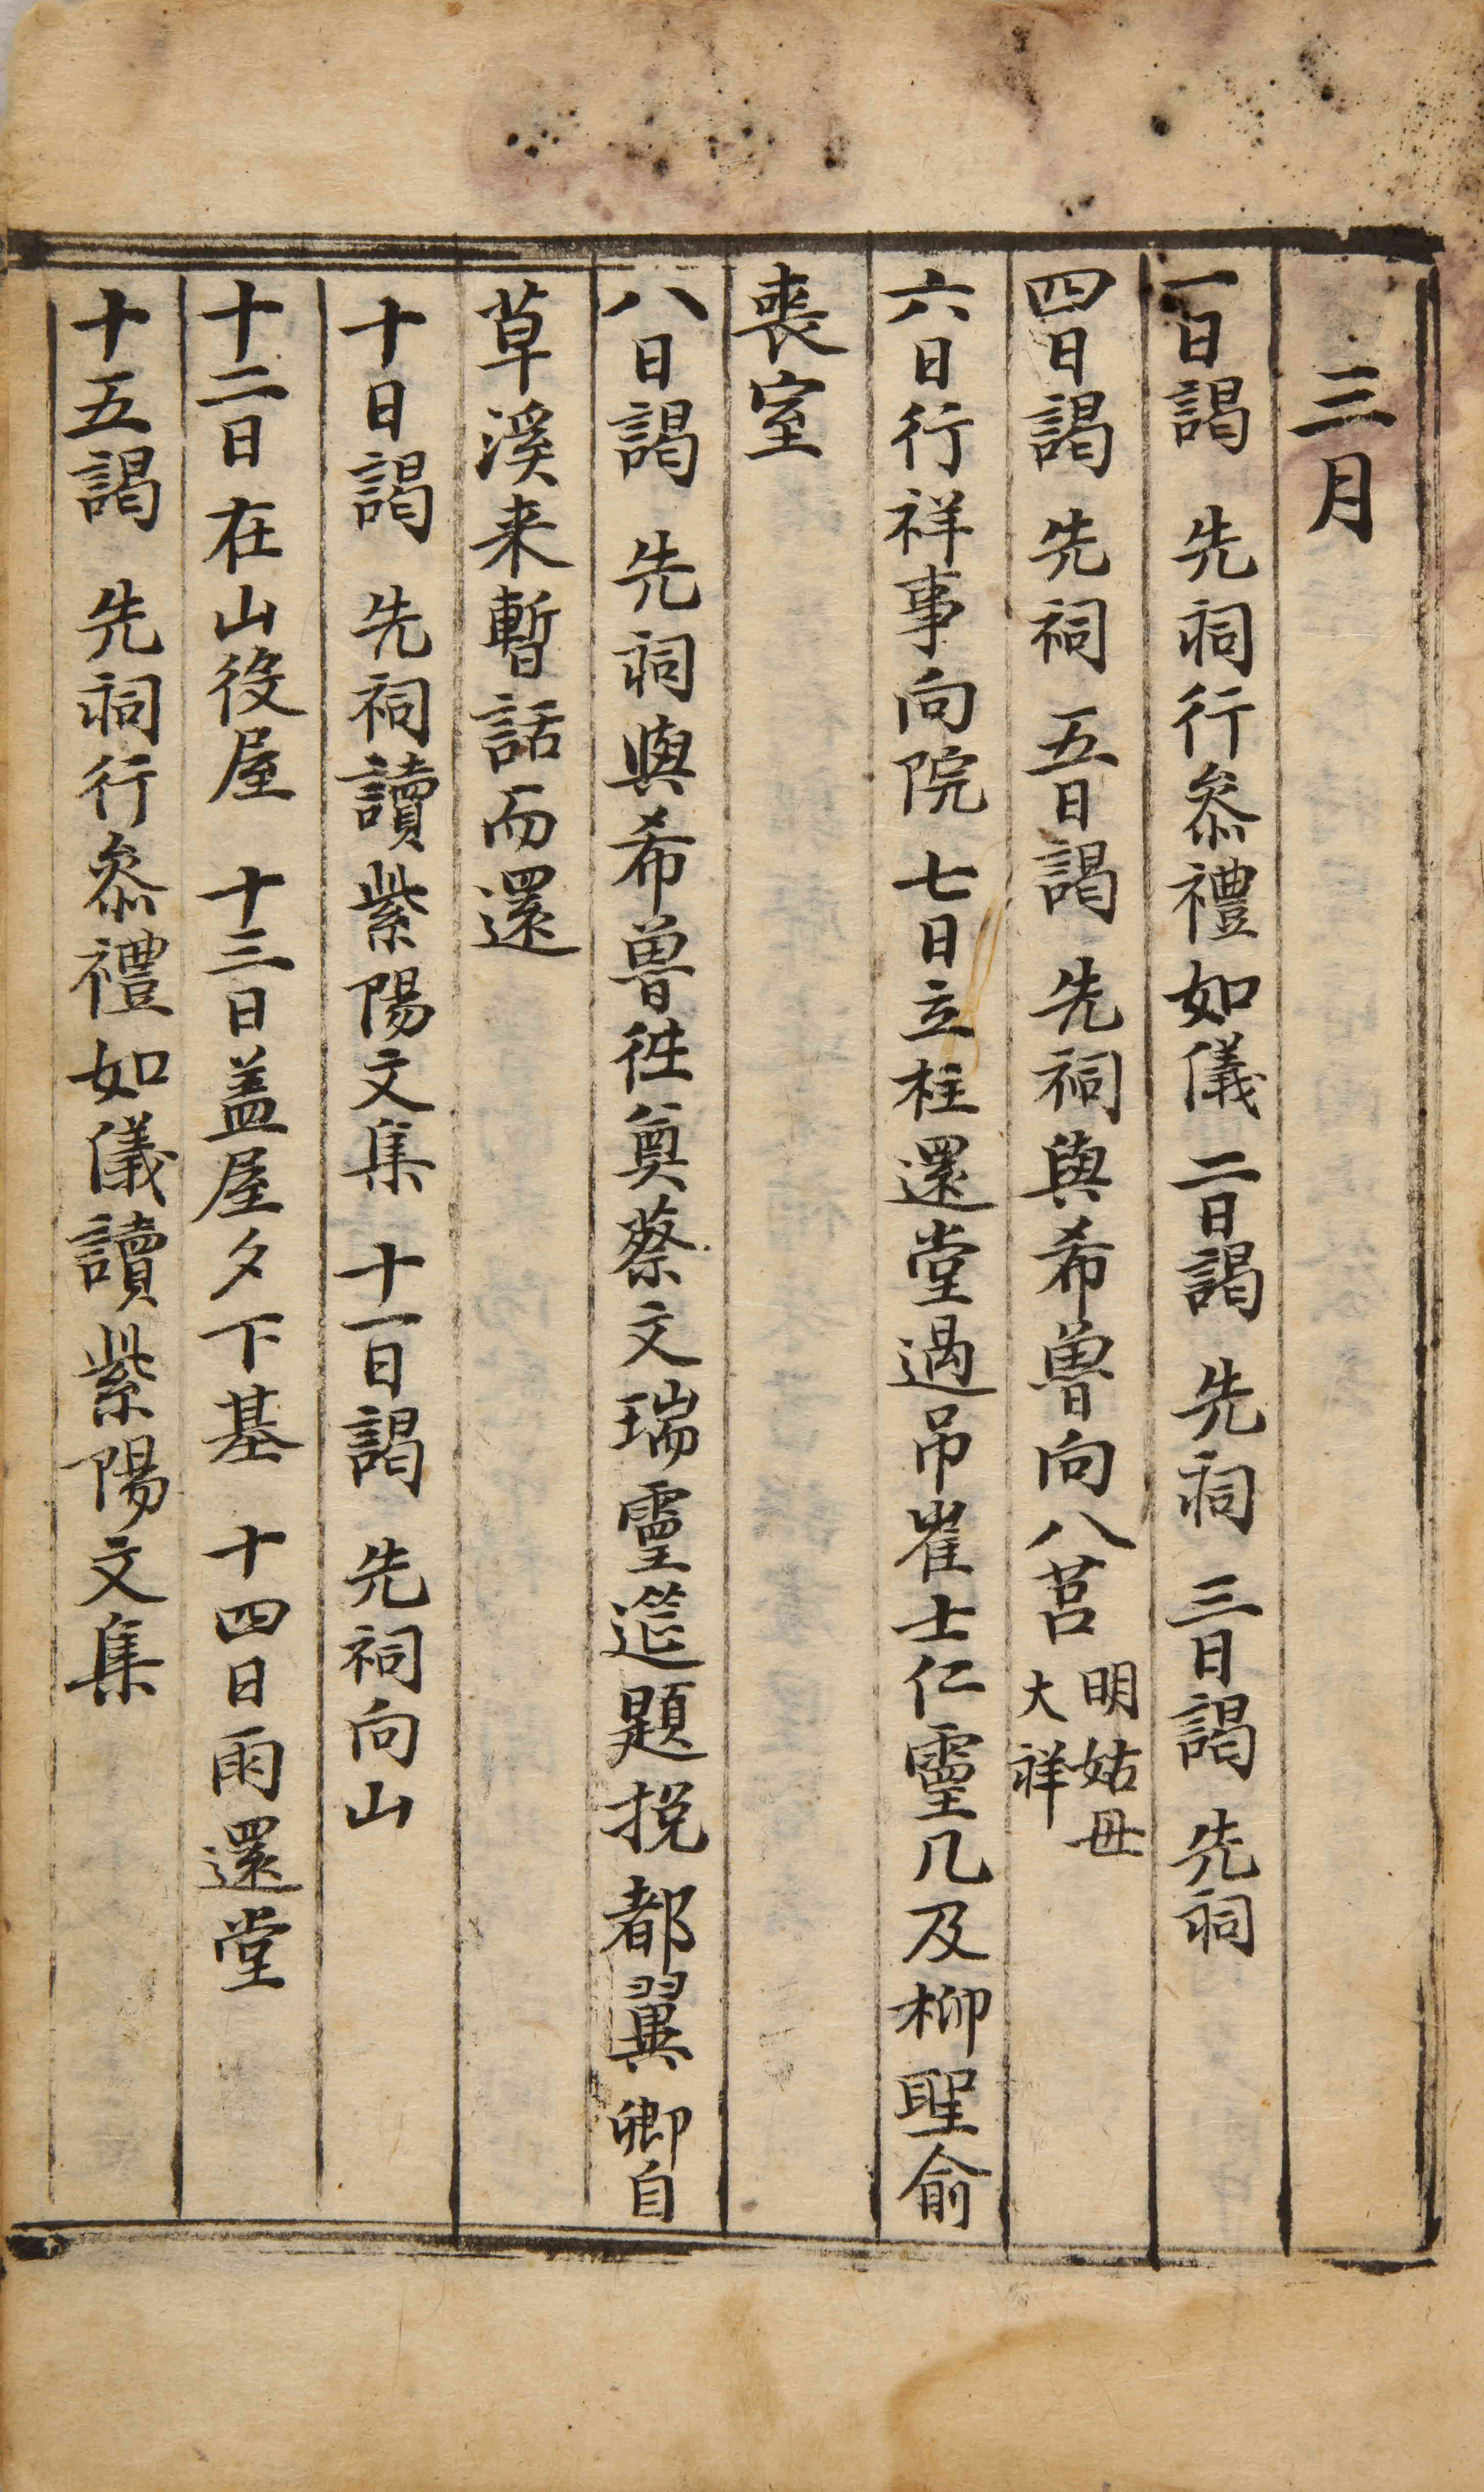 三月
一日謁 先祠行叅禮如儀 二日謁 先祠 三日謁 先祠
四日謁 先祠 五日謁 先祠與希魯向八莒 明姑母大祥
六日行祥事向院 七日立柱還堂過吊崔士仁靈几及柳聖俞
喪室
八日謁 先祠與希魯徃奠蔡文瑞靈筵題挽都翼卿自
草溪来暫話而還
十日謁 先祠讀紫陽文集 十一日謁 先祠向山
十二日在山役屋 十三日盖屋夕下基 十四日雨還堂
十五謁 先祠行叅禮如儀讀紫陽文集